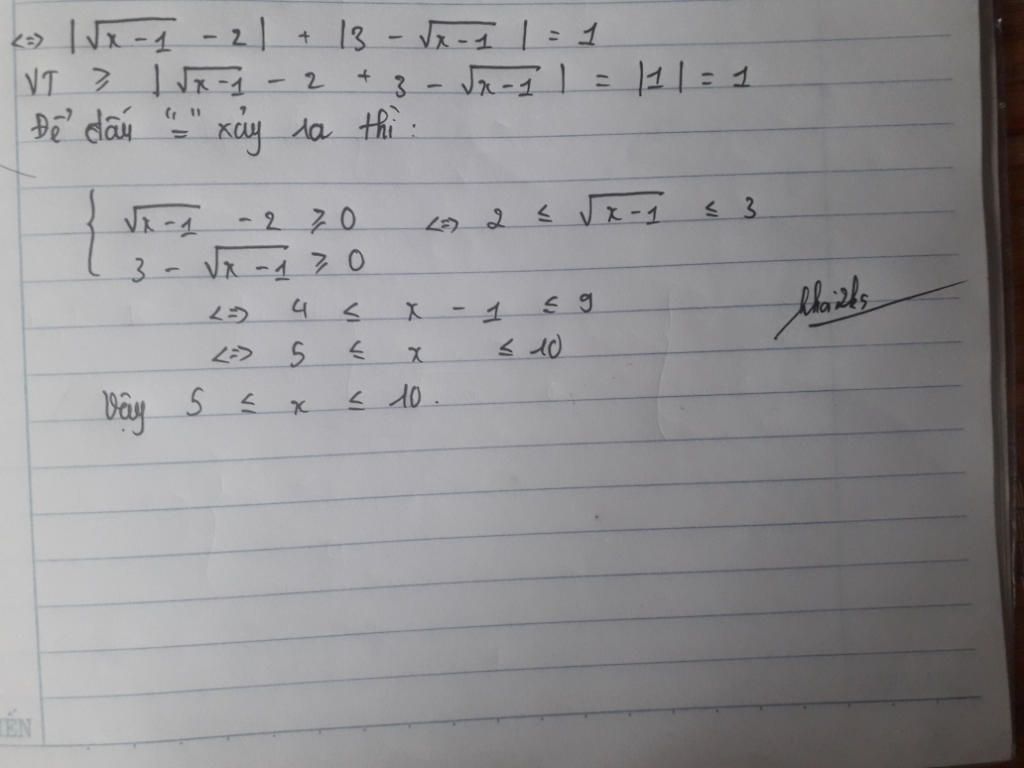 <=> |√x-1 - 2| + |3 - √x-1| = 1
VT ≥ |√x-1 - 2 + 3 - √x-1| = |1| = 1
Để dấu "=" xảy ra thì:
{ √x-1 - 2 ≥ 0 <=> 2 ≤ √x-1 ≤ 3
3 - √x-1 ≥ 0
<=> 4 ≤ x - 1 ≤ 9
<=> 5 ≤ x ≤ 10
Vậy 5 ≤ x ≤ 10.